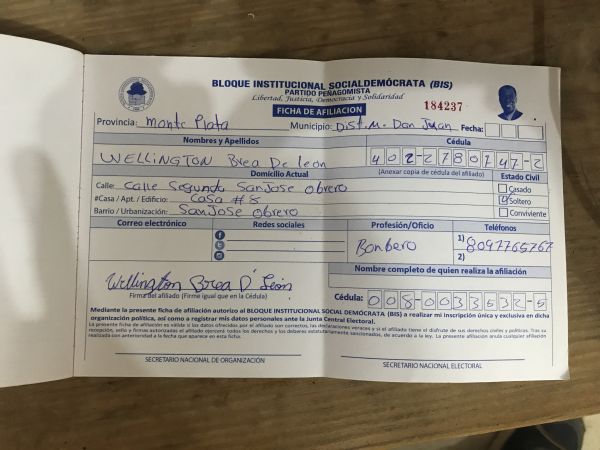 BLOQUE INSTITUCIONAL SOCIALDEMÓCRATA (BIS)
PARTIDO PEÑAGOMISTA
Libertad, Justicia, Democracia y Solidaridad
FICHA DE AFILIACIÓN 184237
Provincia: Monte Plata Municipio: Dist. M. Don Juan Fecha:
Nombres y Apellidos Cédula
WELLINGTON Brea De leon 402-2780747-2
Domicilio Actual (Anexar copia de cédula del afiliado) Estado Civil
Calle: Calle Segunda San Jose Obrero Casado
#Casa / Apt. / Edificio: Casa #8 Soltero
Barrio / Urbanización: San Jose Obrero Conviviente
Correo electrónico Redes sociales Profesión/Oficio Teléfonos
Bombero 1) 8097765767
2)
Nombre completo de quien realiza la afiliación
Wellington Brea D' León
Firma del afiliado (Firme igual que en la Cédula) Cédula: 008-0033532-5
Mediante la presente ficha de afiliación autorizo al BLOQUE INSTITUCIONAL SOCIAL DEMÓCRATA (BIS) a realizar mi inscripción única y exclusiva en dicha
organización política, así como a registrar mis datos personales ante la Junta Central Electoral.
La presente ficha de afiliación es válida si los datos ofrecidos por el afiliado son correctos, las declaraciones veraces y si el afiliado tiene el disfrute de sus derechos civiles y políticos. Tras su
recepción, sello y firmas autorizadas el afiliado ejercerá todos los derechos y los deberes estatutariamente sancionados, de acuerdo a la ley. La presente afiliación anula cualquier afiliación
realizada con anterioridad a la fecha que aparece en esta ficha.
SECRETARIO NACIONAL DE ORGANIZACIÓN SECRETARIO NACIONAL ELECTORAL